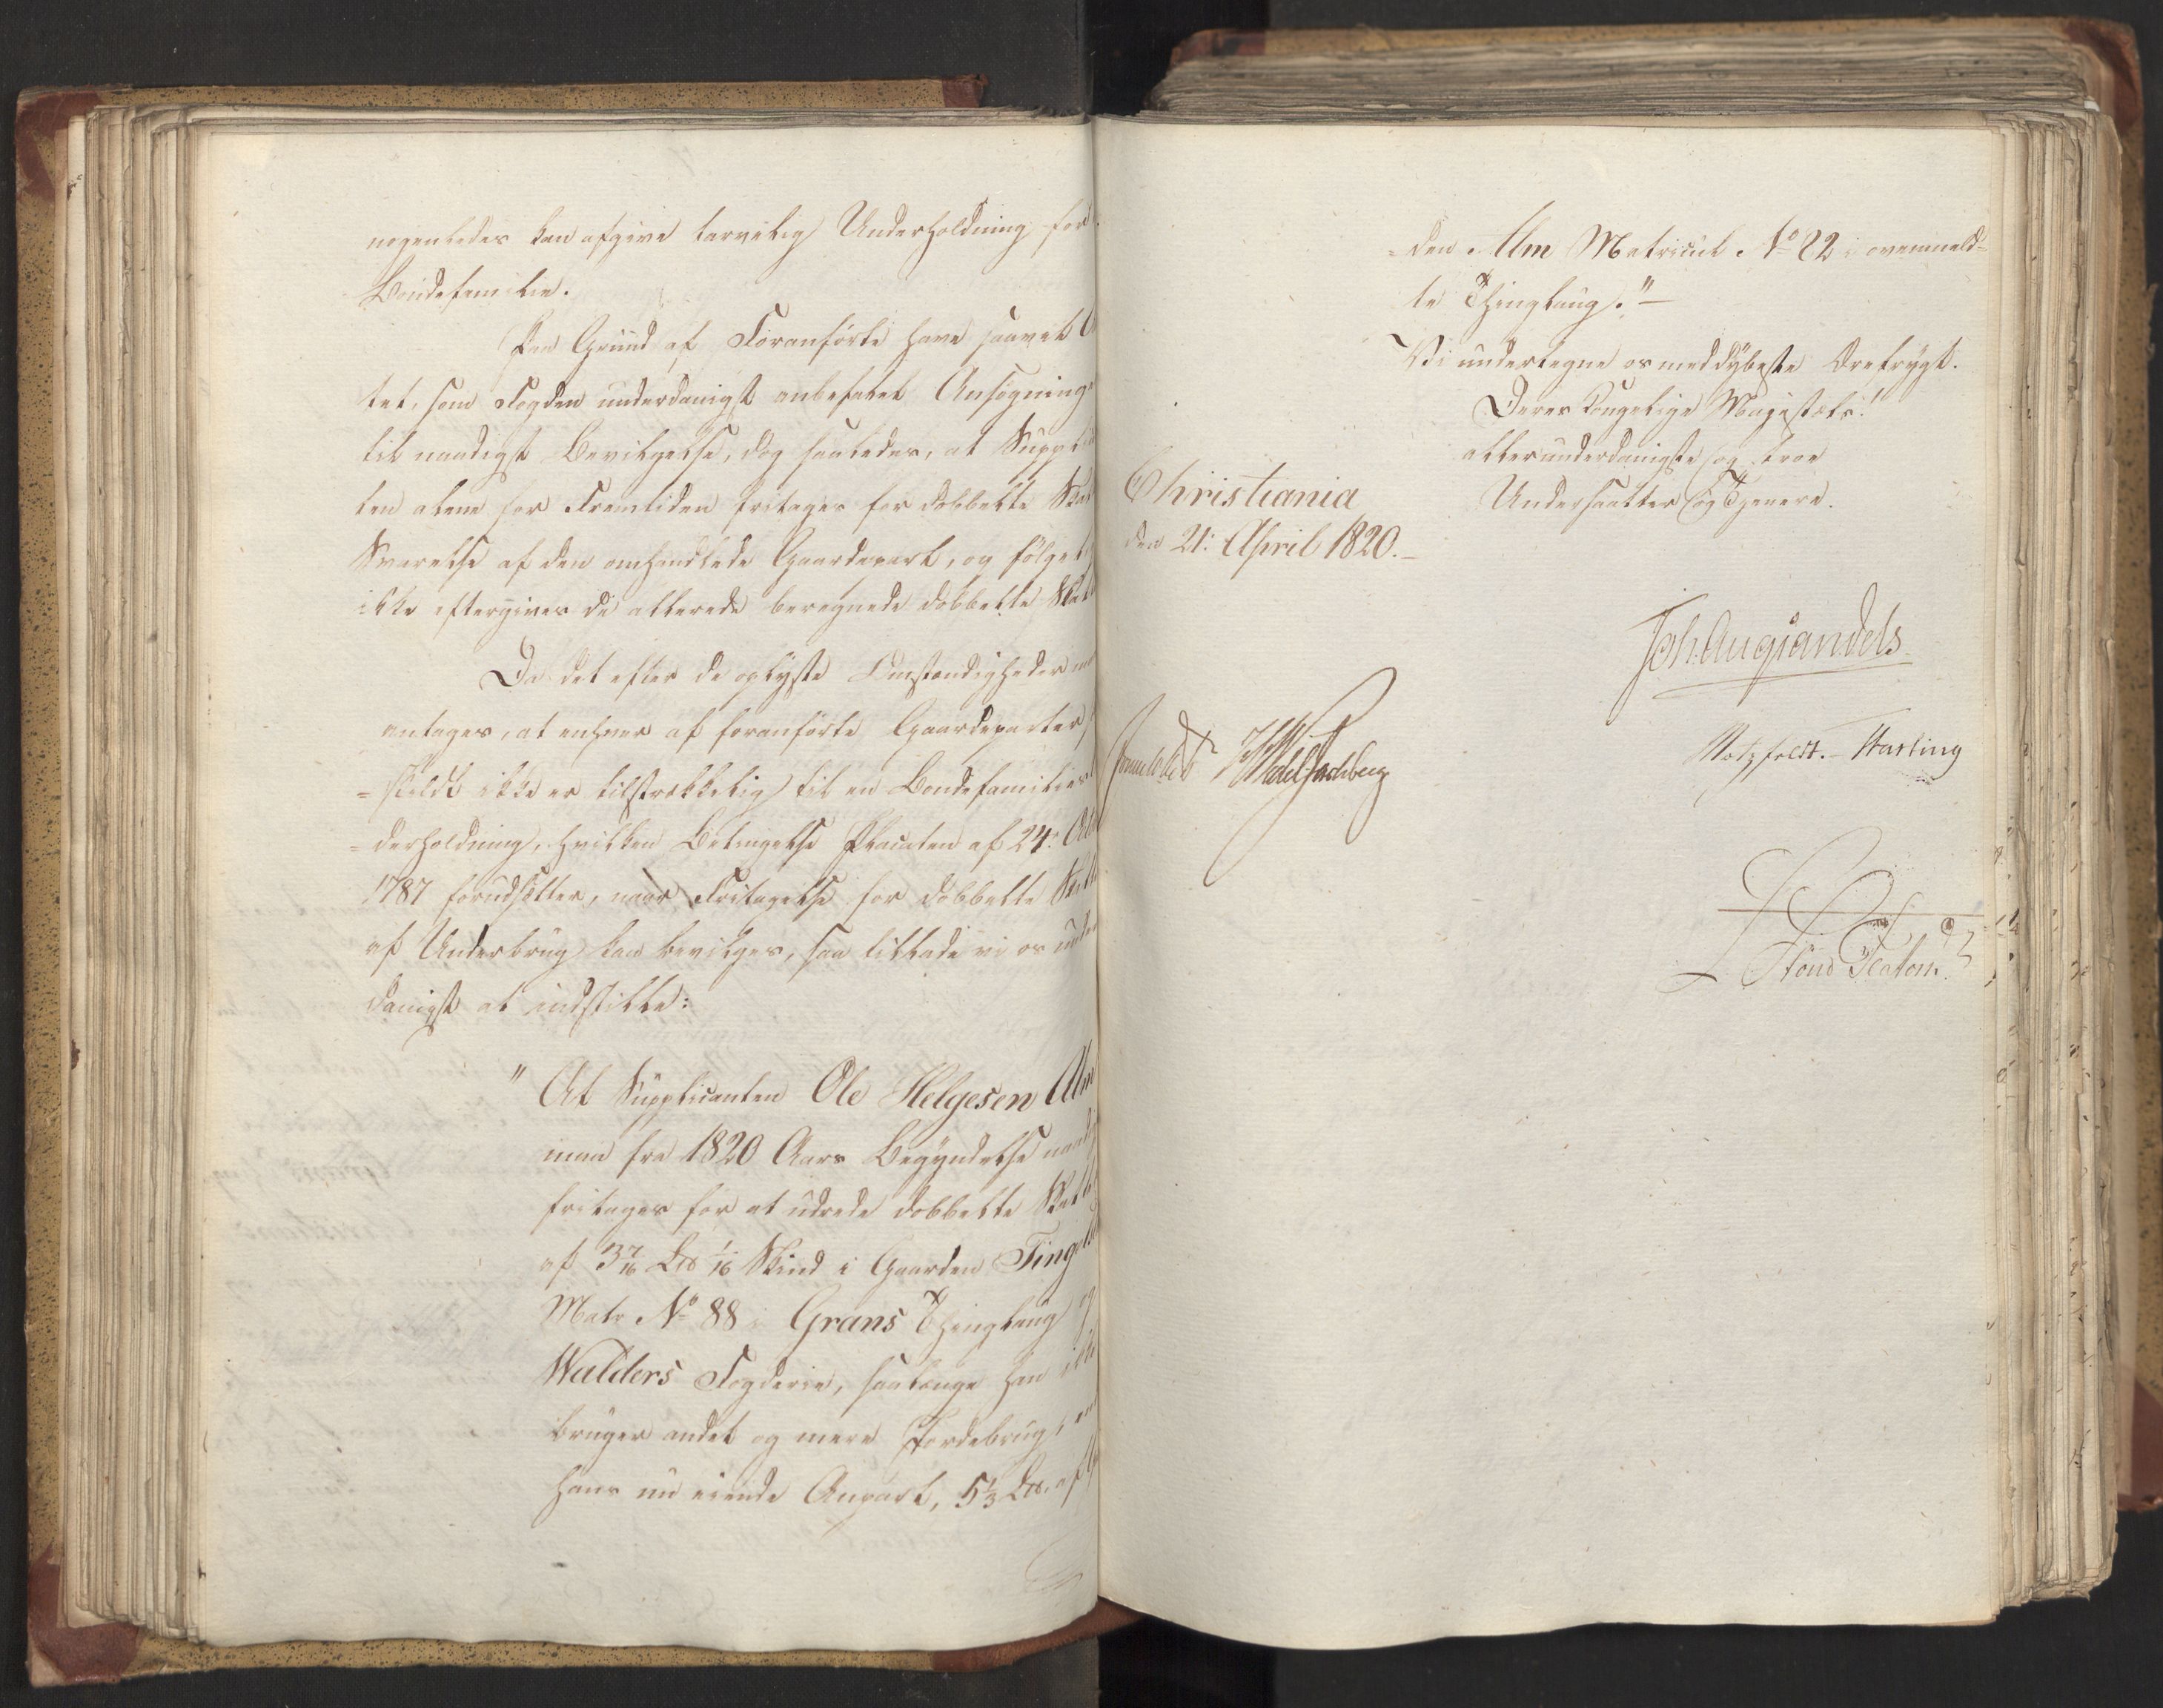 nogenledes kan afgive tarvelig Underholdning for
Bondefamilie.
Paa Grund af Foranførte have saavel
tet, som Fogden underdanigst anbefalet Ansøgning
til naadigst Bevilgelse, dog saaledes, at Suppli
ten alene for Fremtiden fritages for dobbelte
Svarelse af den omhandlede Gaardepart, og følgel
ikke eftergives de allerede beregnede dobbelte Skat
Da det efter de oplyste Omstændigheder
antages, at enhver af foranførte Gaardeparter
=skildt ikke er tilstrækkelig til en Bondefamilies
=derholdning, hvilken Betingelse Placaten af 24:
1787 forudsætter, naar Fritagelse for dobbelte
af Underbrug kan bevilges, saa tillade vi os under
danigst at indstille:
" At Supplicanten Ole Helgesen Alm
maa fra 1820 Aars Begyndelse
fritages for at udrede dobbelte Skat
af 3 7/16 Lb 1/16 Skind i Gaarden Tingel
Matr No 88 i Grans Thinglaug og
Walders Fogderie, saalænge han ikke
bruger andet og mere Jordebrug,
hans nu eiende Anpart, 5 1/3 Lb. af
=den Alm Matricul No 82 i ovenmeld=
te Thinglaug."—
Vi undertegne os med dybeste Ærefrygt.
Deres Kongelige Majestæts!
allerunderdanigste og troe
Undersaatter og Tjenere.
Christiania
den 21: April 1820.—
Joh. Aug Sandels
Motzfeldt. — Hasling
Wedel Jarlsberg